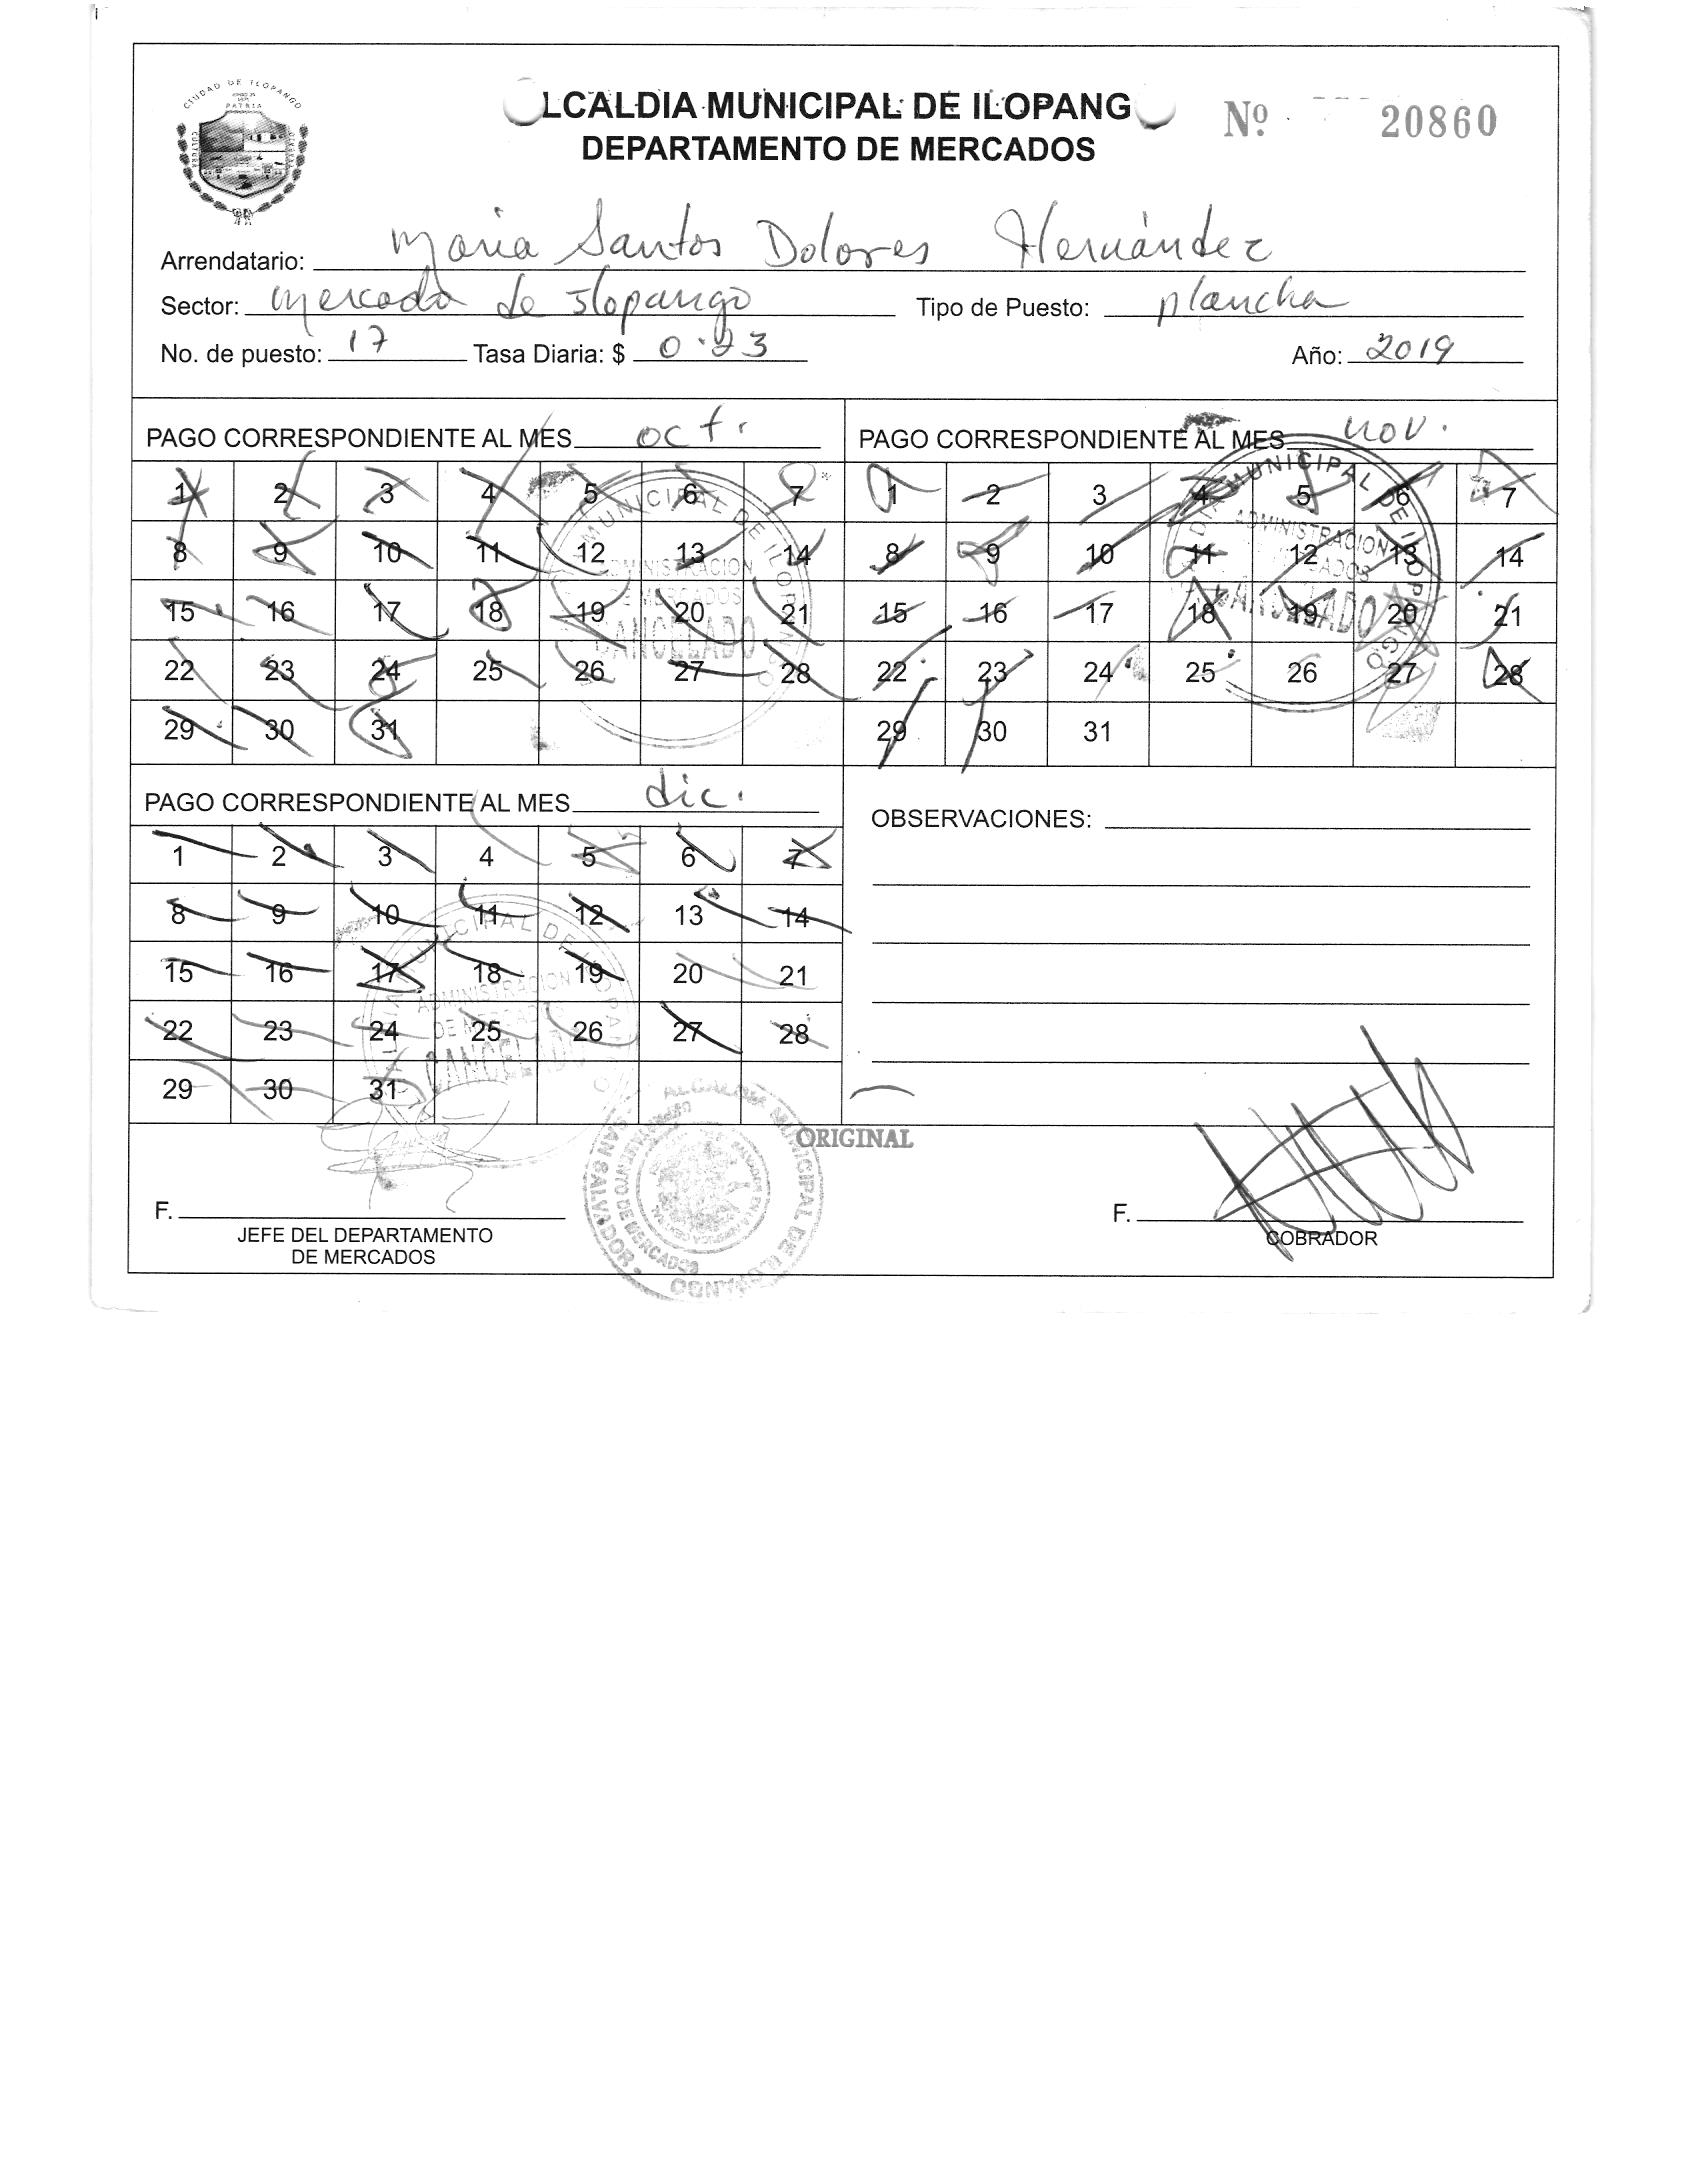 CIUDAD DE ILOPANGO
PATRIA
CULTURA
LCALDIA MUNICIPAL DE ILOPANG
Nº 20860
DEPARTAMENTO DE MERCADOS
Arrendatario: Maria Santos Dolores Hernández
Sector: Mercado de Ilopango Tipo de Puesto: plancha
No. de puesto: 17 Tasa Diaria: $ 0.23 Año: 2019
PAGO CORRESPONDIENTE AL MES oct.
1 2 3 4 5 6 7
8 9 10 11 12 13 14
15 16 17 18 19 20 21
22 23 24 25 26 27 28
29 30 31
MUNICIPAL DE ILOPANGO
ADMINISTRACION
DE MERCADOS
CANCELADO
PAGO CORRESPONDIENTE AL MES nov.
1 2 3 4 5 6 7
8 9 10 11 12 13 14
15 16 17 18 19 20 21
22 23 24 25 26 27 28
29 30 31
MUNICIPAL DE ILOPANGO
ADMINISTRACION
CANCELADO
PAGO CORRESPONDIENTE AL MES dic.
1 2 3 4 5 6 7
8 9 10 11 12 13 14
15 16 17 18 19 20 21
22 23 24 25 26 27 28
29 30 31
ADMINISTRACION
DE MERCADOS
CANCELADO
OBSERVACIONES:
ORIGINAL
ALCALDIA MUNICIPAL DE ILOPANGO
DEPARTAMENTO DE MERCADOS
SAN SALVADOR
F.
JEFE DEL DEPARTAMENTO
DE MERCADOS
F.
COBRADOR